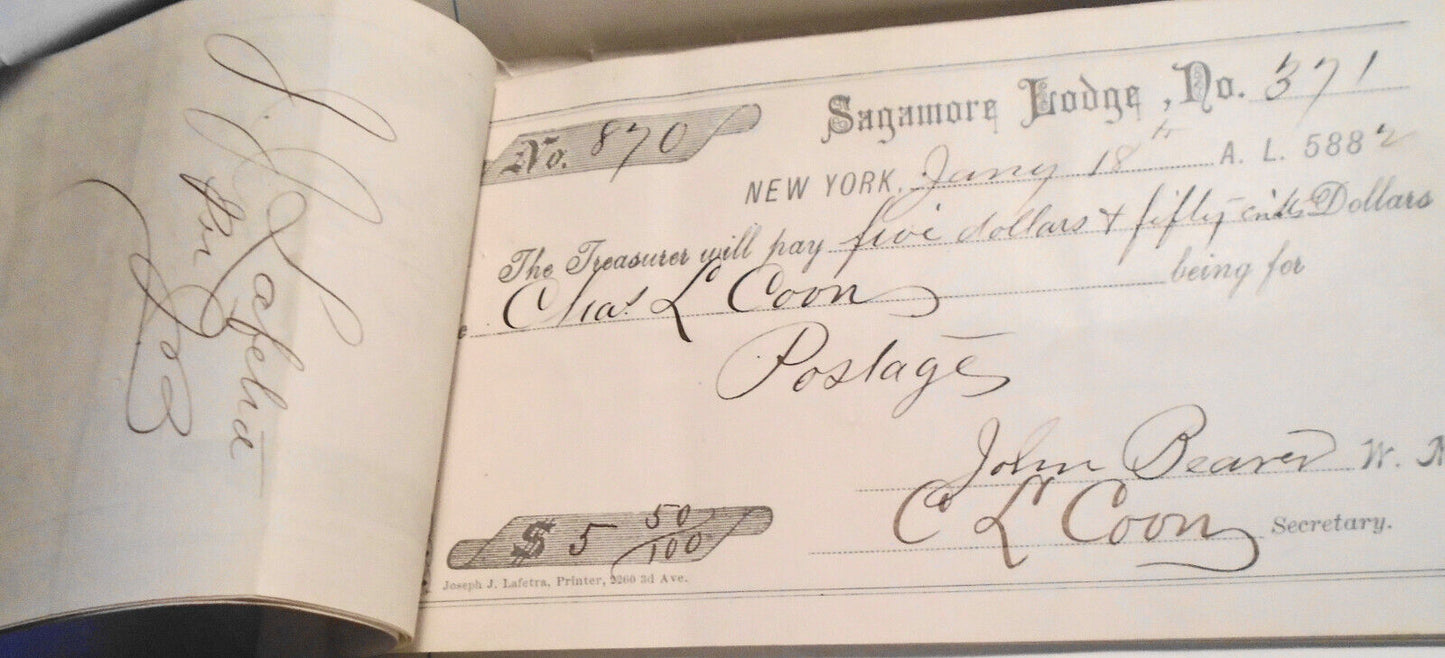 J. J. Lafetra
Per Job
Sagamore Lodge, No. 371
No. 870
NEW YORK, Jany 18th A. L. 5882
The Treasurer will pay five dollars & fifty cents Dollars
Chas. L Coon being for
Postage
John Beaver W. M
C L Coon Secretary.
$ 5 50/100
Joseph J. Lafetra, Printer, 2260 3d Ave.